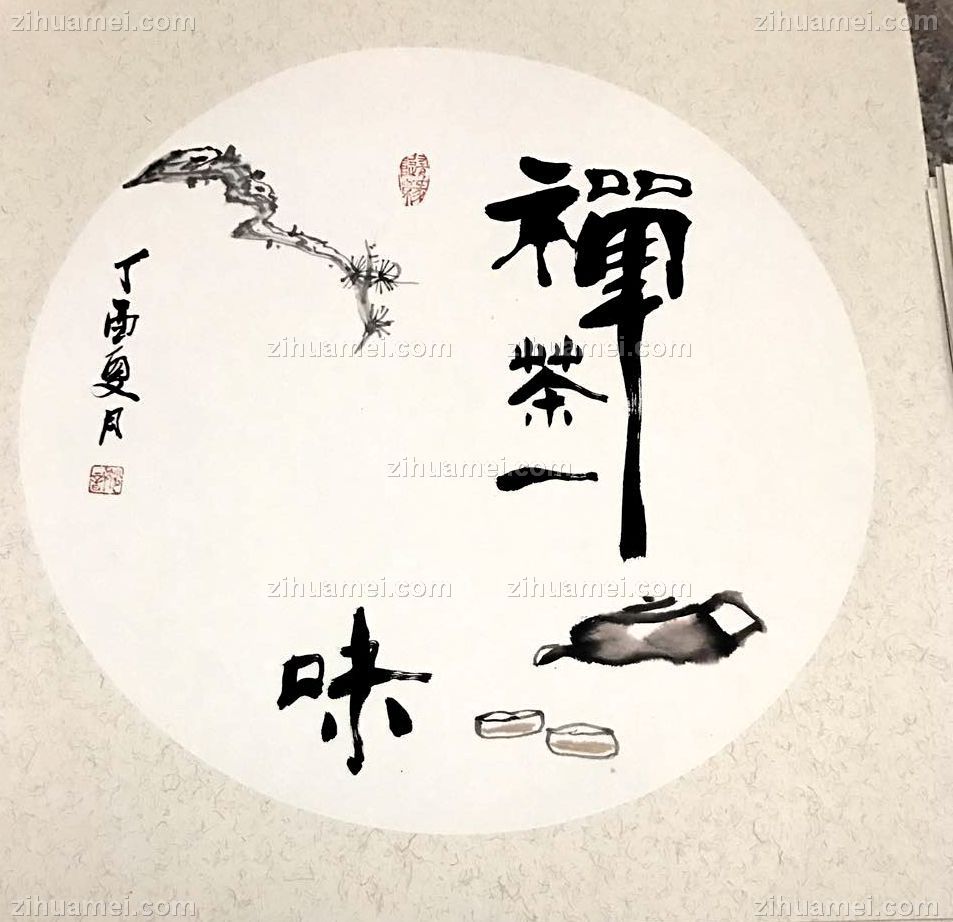 禪茶一
味
丁酉夏月
zihuamei.com
zihuamei.com
zihuamei.com
zihuamei.com
zihuamei.com
zihuamei.com
zihuamei.com
zihuamei.com
zihuamei.com